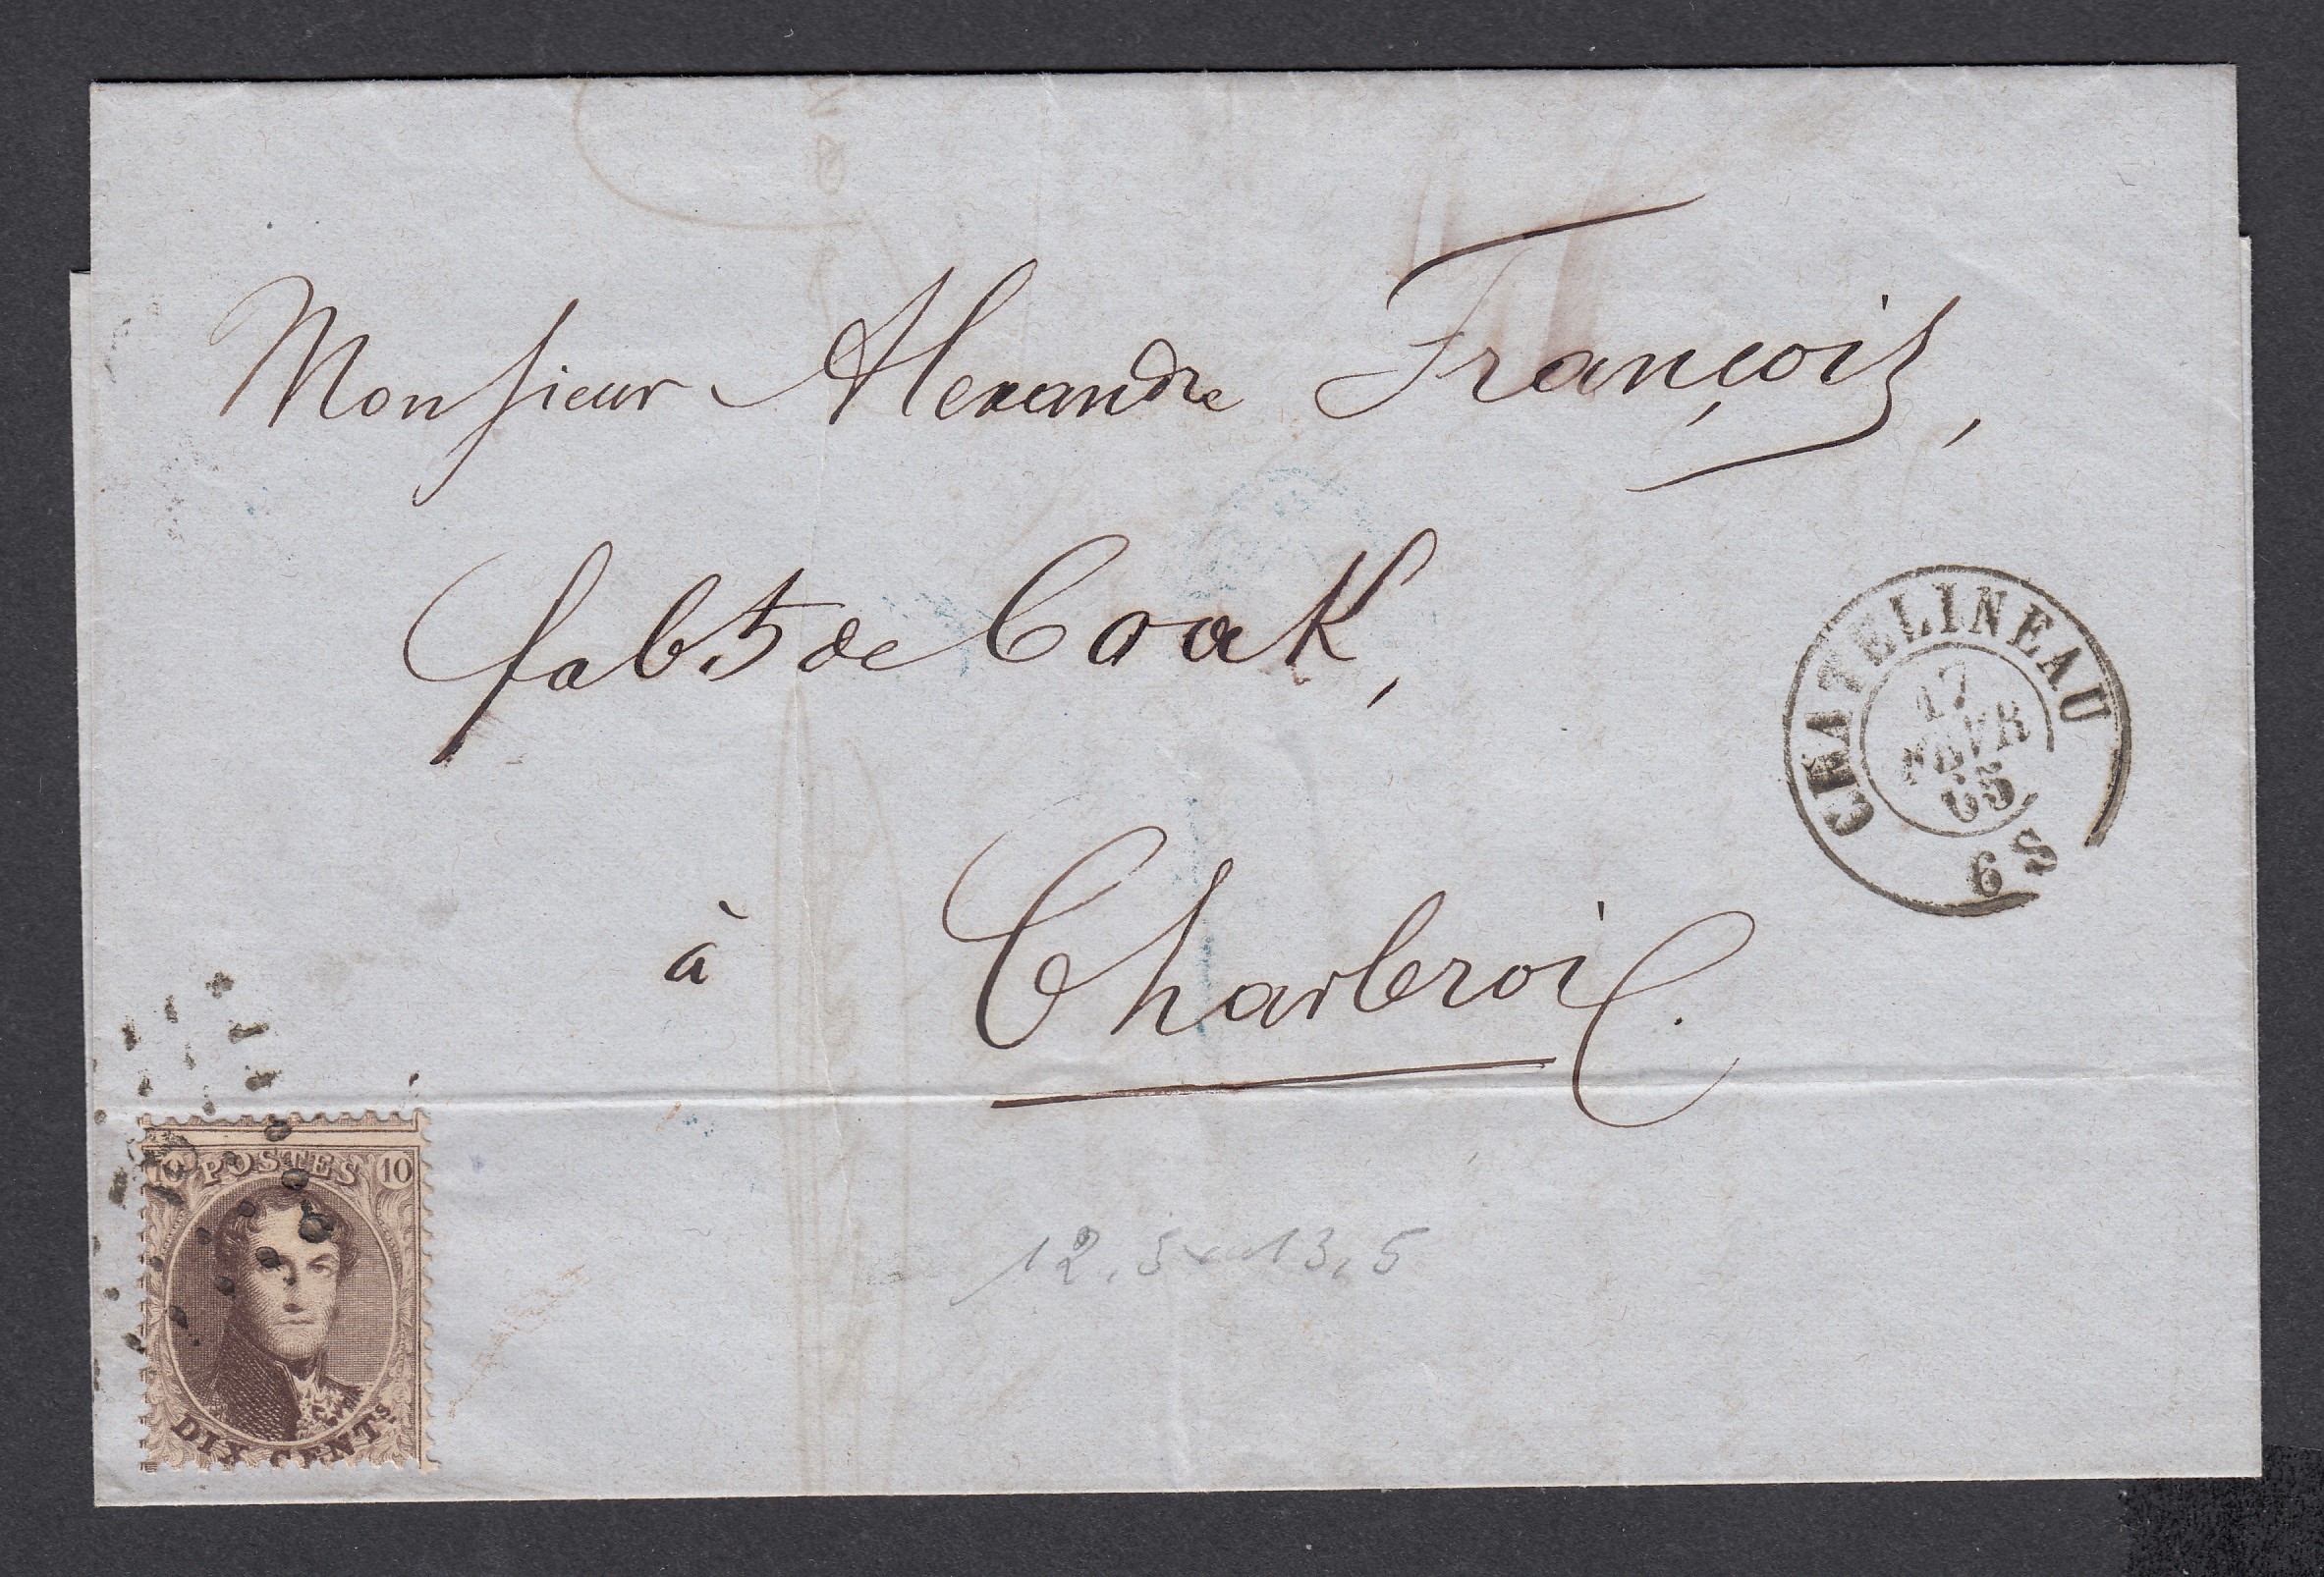 Monsieur Alexandre François,
fabt de Coak,
à Charleroi.
CHATELINEAU
17
FEVR
65
6 S
10 POSTES 10
DIX CENTS.
12,5 x 13,5